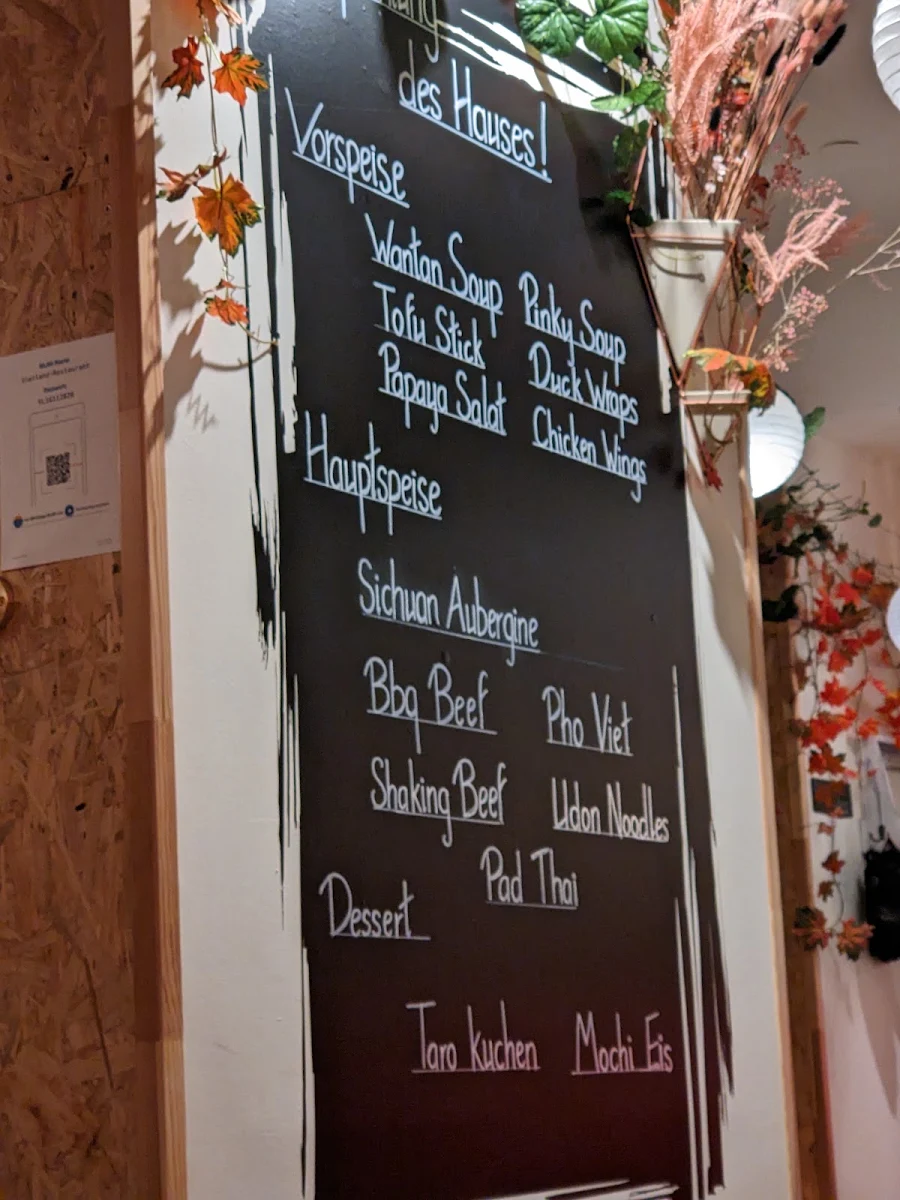 des Hauses!
Vorspeise
Wantan Soup
Pinky Soup
Tofu Stick
Duck Wraps
Papaya Salat
Chicken Wings
Hauptspeise
Sichuan Aubergine
Bbq Beef
Pho Viet
Shaking Beef
Udon Noodles
Pad Thai
Dessert
Taro Kuchen
Mochi Eis